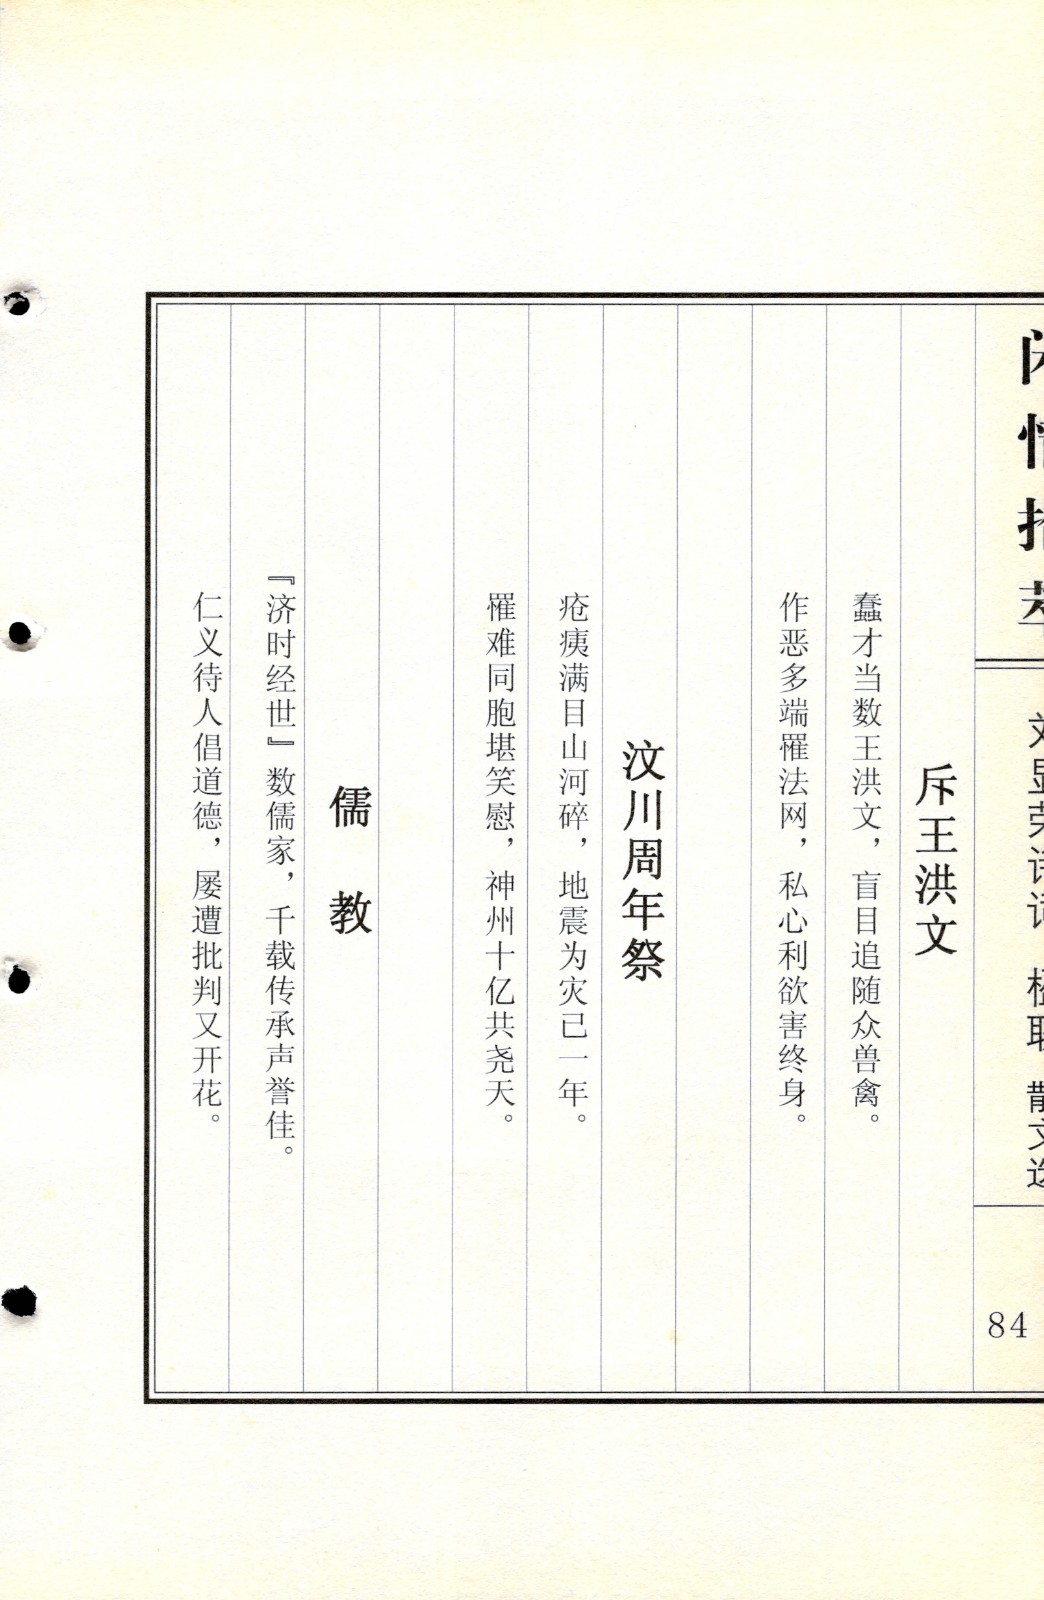 斥王洪文
蠢才当数王洪文，盲目追随众兽禽。
作恶多端罹法网，私心利欲害终身。
汶川周年祭
疮痍满目山河碎，地震为灾已一年。
罹难同胞堪笑慰，神州十亿共尧天。
儒 教
『济时经世』数儒家，千载传承声誉佳。
仁义待人倡道德，屡遭批判又开花。
84